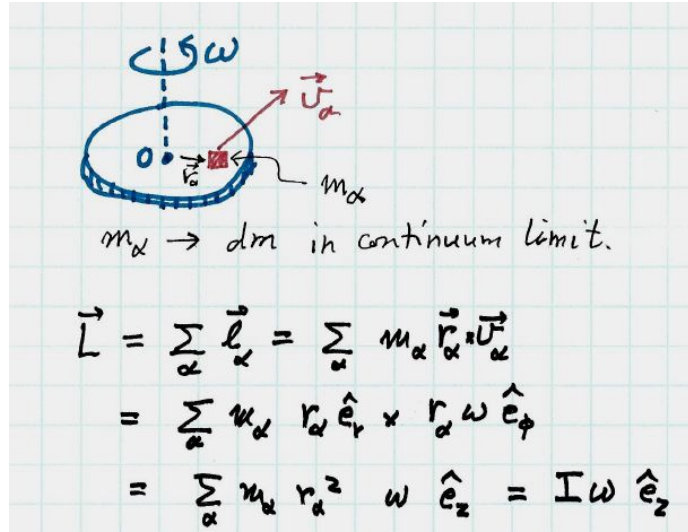 ω
v⃗_α
O
r⃗_α
m_α
m_α → dm in continuum limit.
L⃗ = Σ_α l⃗_α = Σ_α m_α r⃗_α × v⃗_α
= Σ_α m_α r_α ê_r × r_α ω ê_φ
= Σ_α m_α r_α² ω ê_z = I ω ê_z